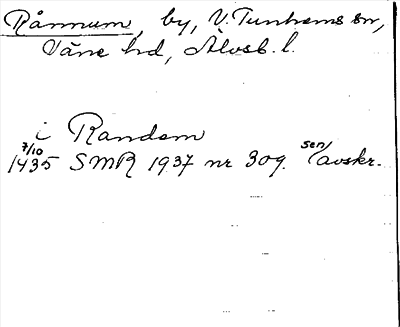 Rånnum, by, V. Tunhems sn,
Väne hd, Älvsb. l.
i Randem
7/10 1435 SMR 1937 nr 309. sen avskr.